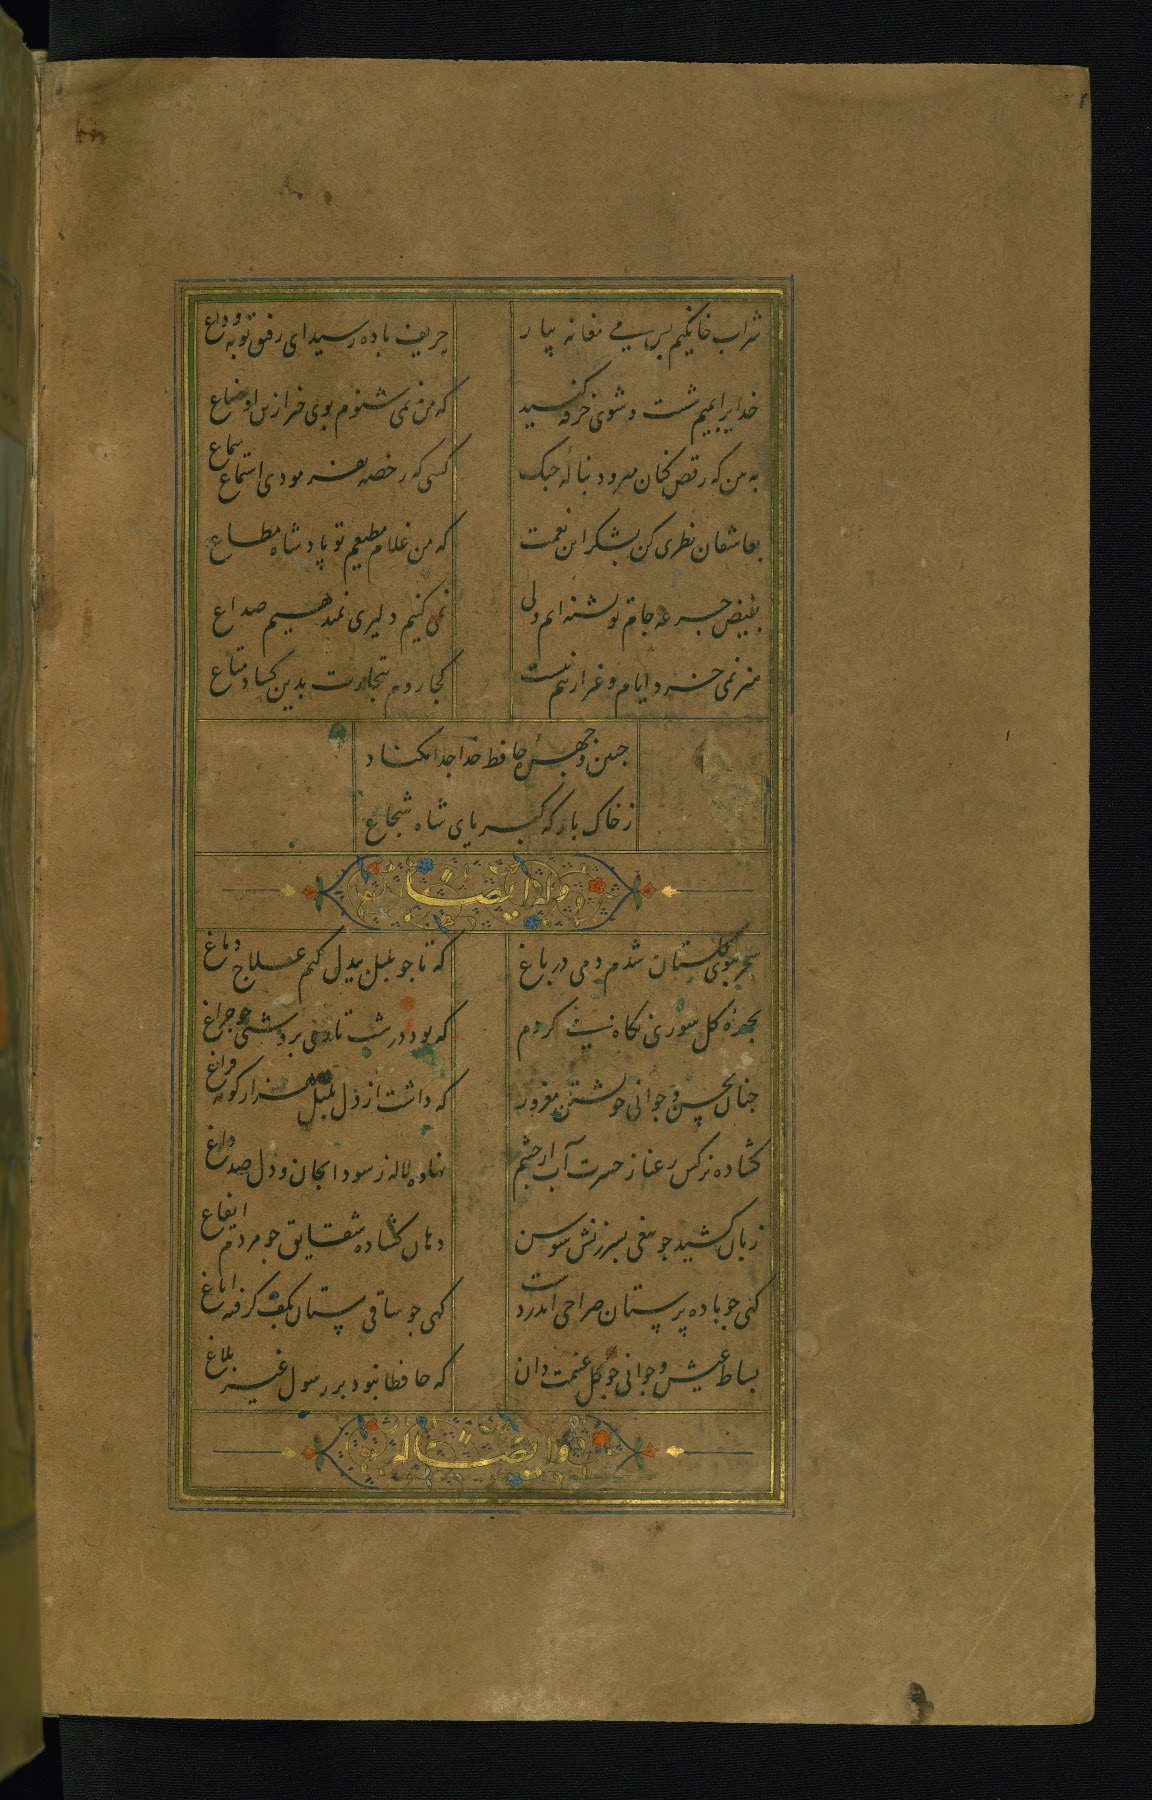 شراب خانگیم بس می مغانه بیار
حریف باده رسید ای رفیق توبه وداع
خدایرا بمیم شست و شوی خرقه کنید
که من نمی شنوم بوی خیر ازین اوضاع
به من که رقص کنان میرود بنالهٔ چنک
کسی که رخصه نفرمودی استماع سماع
بعاشقان نظری کن بشکر این نعمت
که من غلام مطیعم تو پادشاه مطاع
بفیض جرعه جام تو تشنه ایم ولی
نمی کنیم دلیری نمیدهیم صداع
هنر نمی خرد ایام و غیر ازینم نیست
کجا روم بتجارت بدین کساد متاع
جبین و چهرهٔ حافظ خدا جدا مکناد
ز خاک بارکه کبریای شاه شجاع
وله ایضا
سحر ببوی گلستان شدم دمی در باغ
که تا چو بلبل بیدل کنم علاج دماغ
بچهرهٔ گل سوری نگاه میکردم
که بود در شب تاری بروشنی چو چراغ
چنان بحسن و جوانی خویشتن مغرور
که داشت از دل بلبل هزار گونه فراغ
گشاده نرگس رعنا ز حسرت آب از چشم
نهاده لاله ز سودا بجان و دل صد داغ
زبان کشیده چو تیغی بسرزنش سوسن
دهان گشاده شقایق چو مردم ایغاغ
گهی چو باده پرستان صراحی اندر دست
گهی چو ساقی مستان بکف گرفته ایاغ
بساط عیش و جوانی چو گل غنیمت دان
که حافظا نبود بر رسول غیر بلاغ
وله ایضا